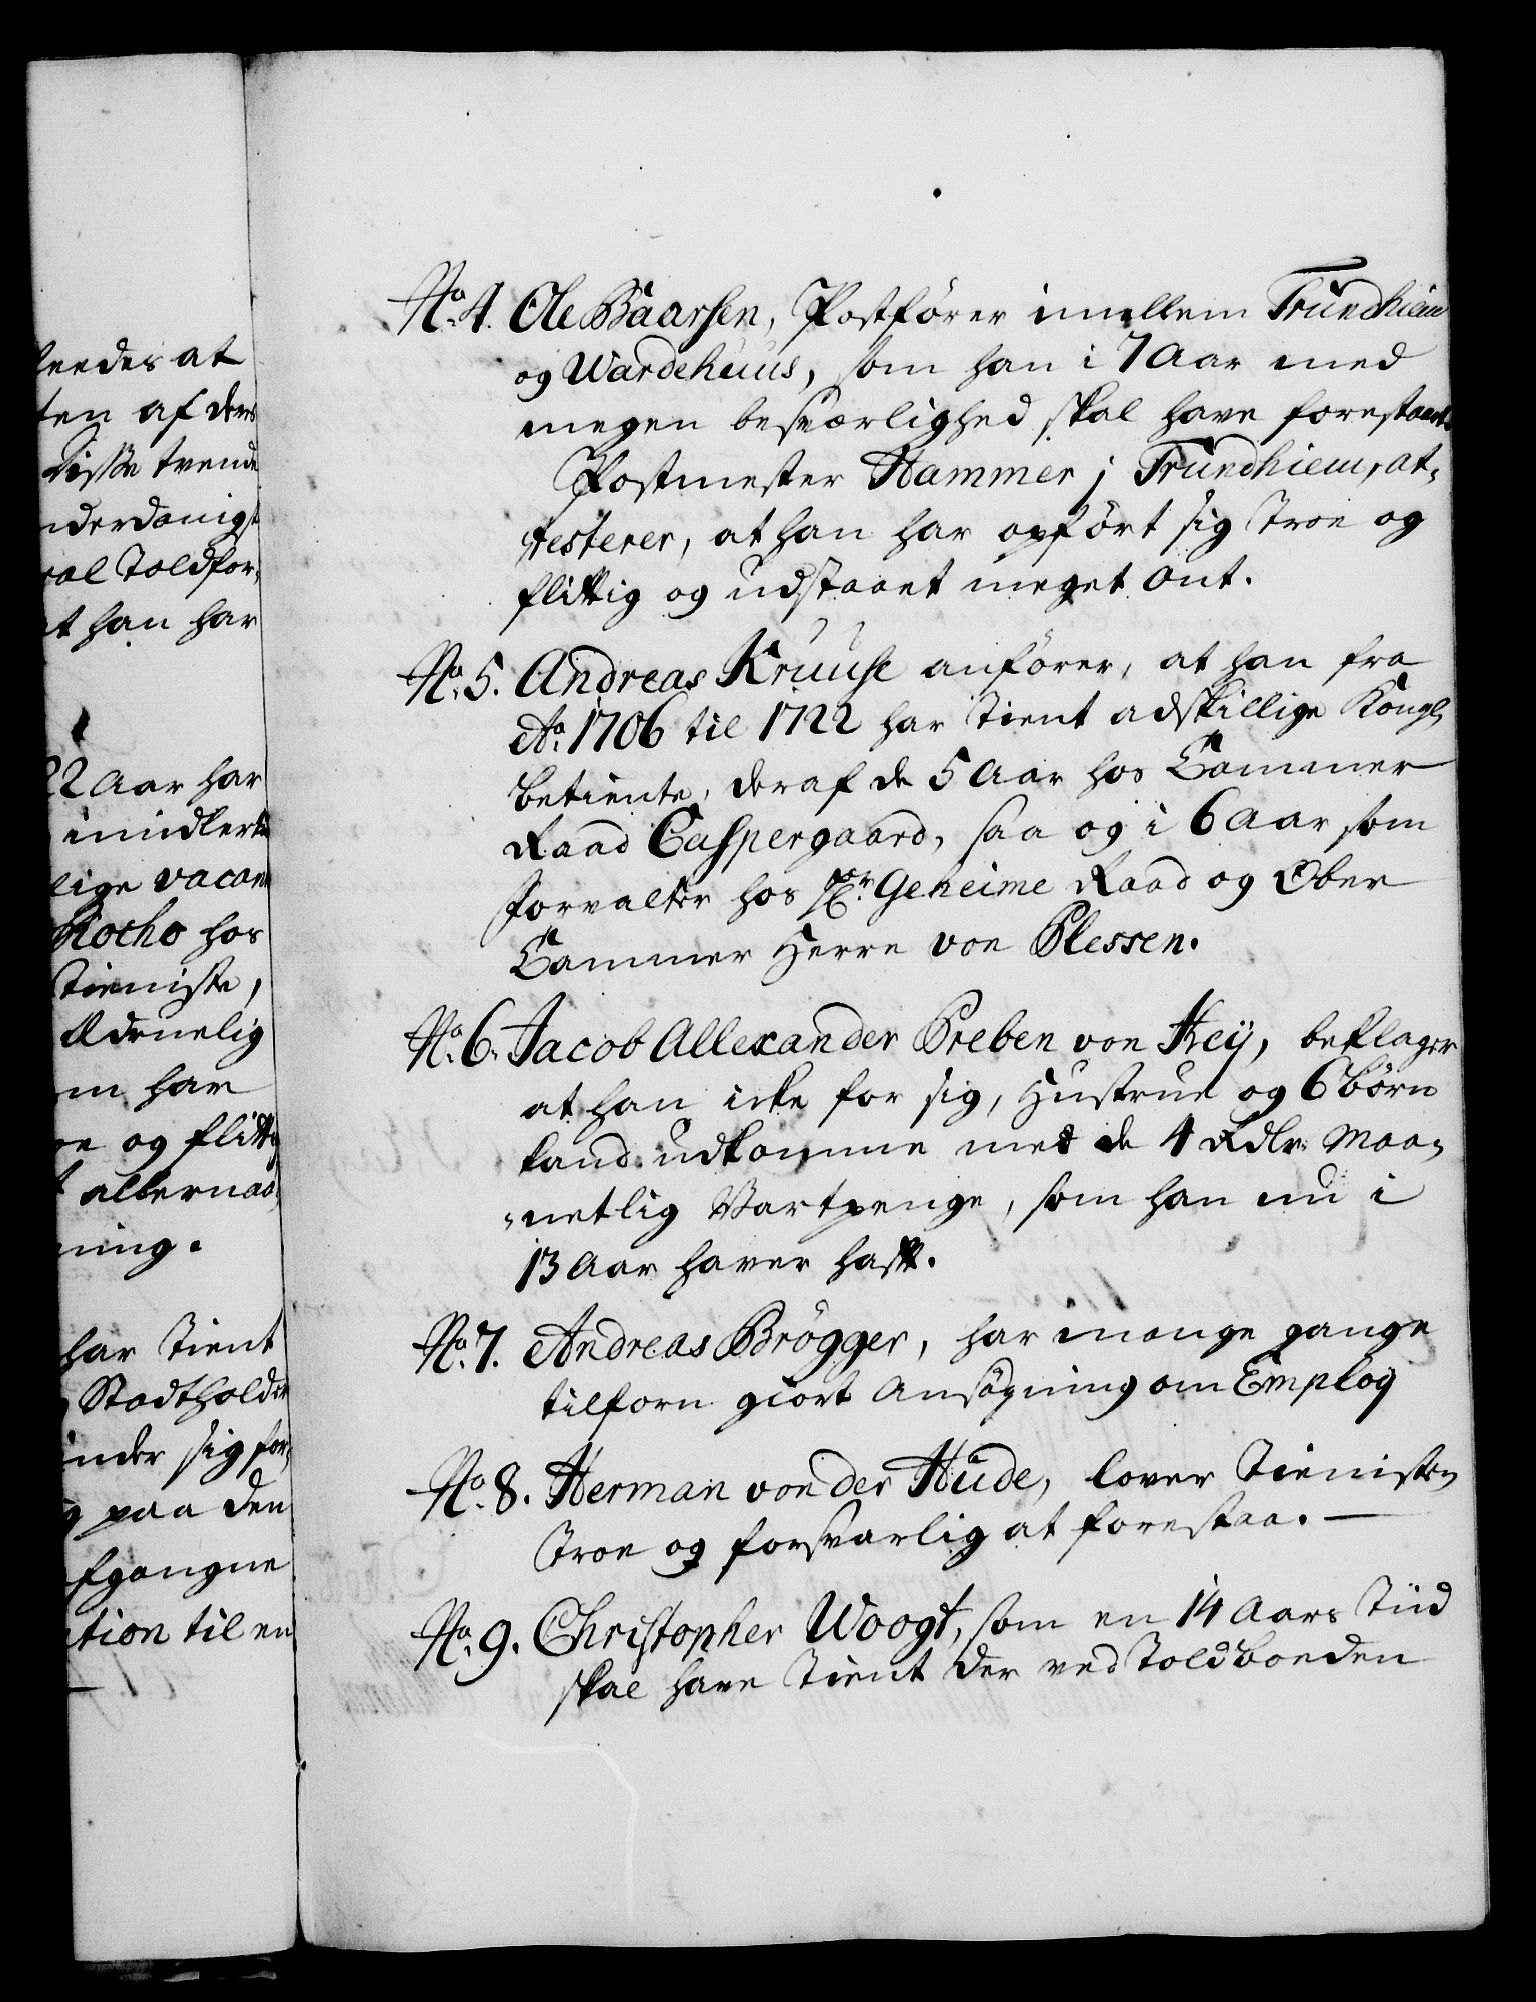 leedes at
ten af deres
Disse trende
nderdanigst
ral Toldfor,
at han har
22 Aar har
imidlertid
lige vacan
Rocho hos
Tieniste,
Ædruelig
m har
oe og flittig
t allernaa,
ning.
har tient
Stadtholder
inder sig for,
g paa den
fgangne
ation til en
No. 4. Ole Baarsen, Postfører imellem Trundhiem
og Wardehuus, som han i 7 Aar med
megen besværlighed skal have forestaaet.
Postmester Hammer j Trundhiem, at,
testerer, at han har opført sig troe og
flittig og udstaaet meget ont.
No. 5. Andreas Kruuse anfører, at han fra
Ao. 1706 til 1722 har tient adskillige Kongl.
betiente, deraf de 5 Aar hos Cammer
Raad Caspergaard, saa og i 6 Aar som
forvalter hos Hr. Geheime Raad og Ober
Cammer Herre von Plessen.
No. 6. Jacob Allexander Preben von Key, beklager
at han icke for sig, Hustrue og 6 børn
kand udkomme med de 4 Rdlr. Maa,
netlig Vartpenge, som han nu i
13 Aar haver hafft.
No. 7. Andreas Brøgger, har mange gange
tilforn giort Ansøgning om Employ
No. 8. Herman von der Hude, lover Tienisten
troe og forsvarlig at forestaa. —
No. 9. Christopher Woogt, som en 14 Aars Tiid
skal have tient der ved Toldboeden